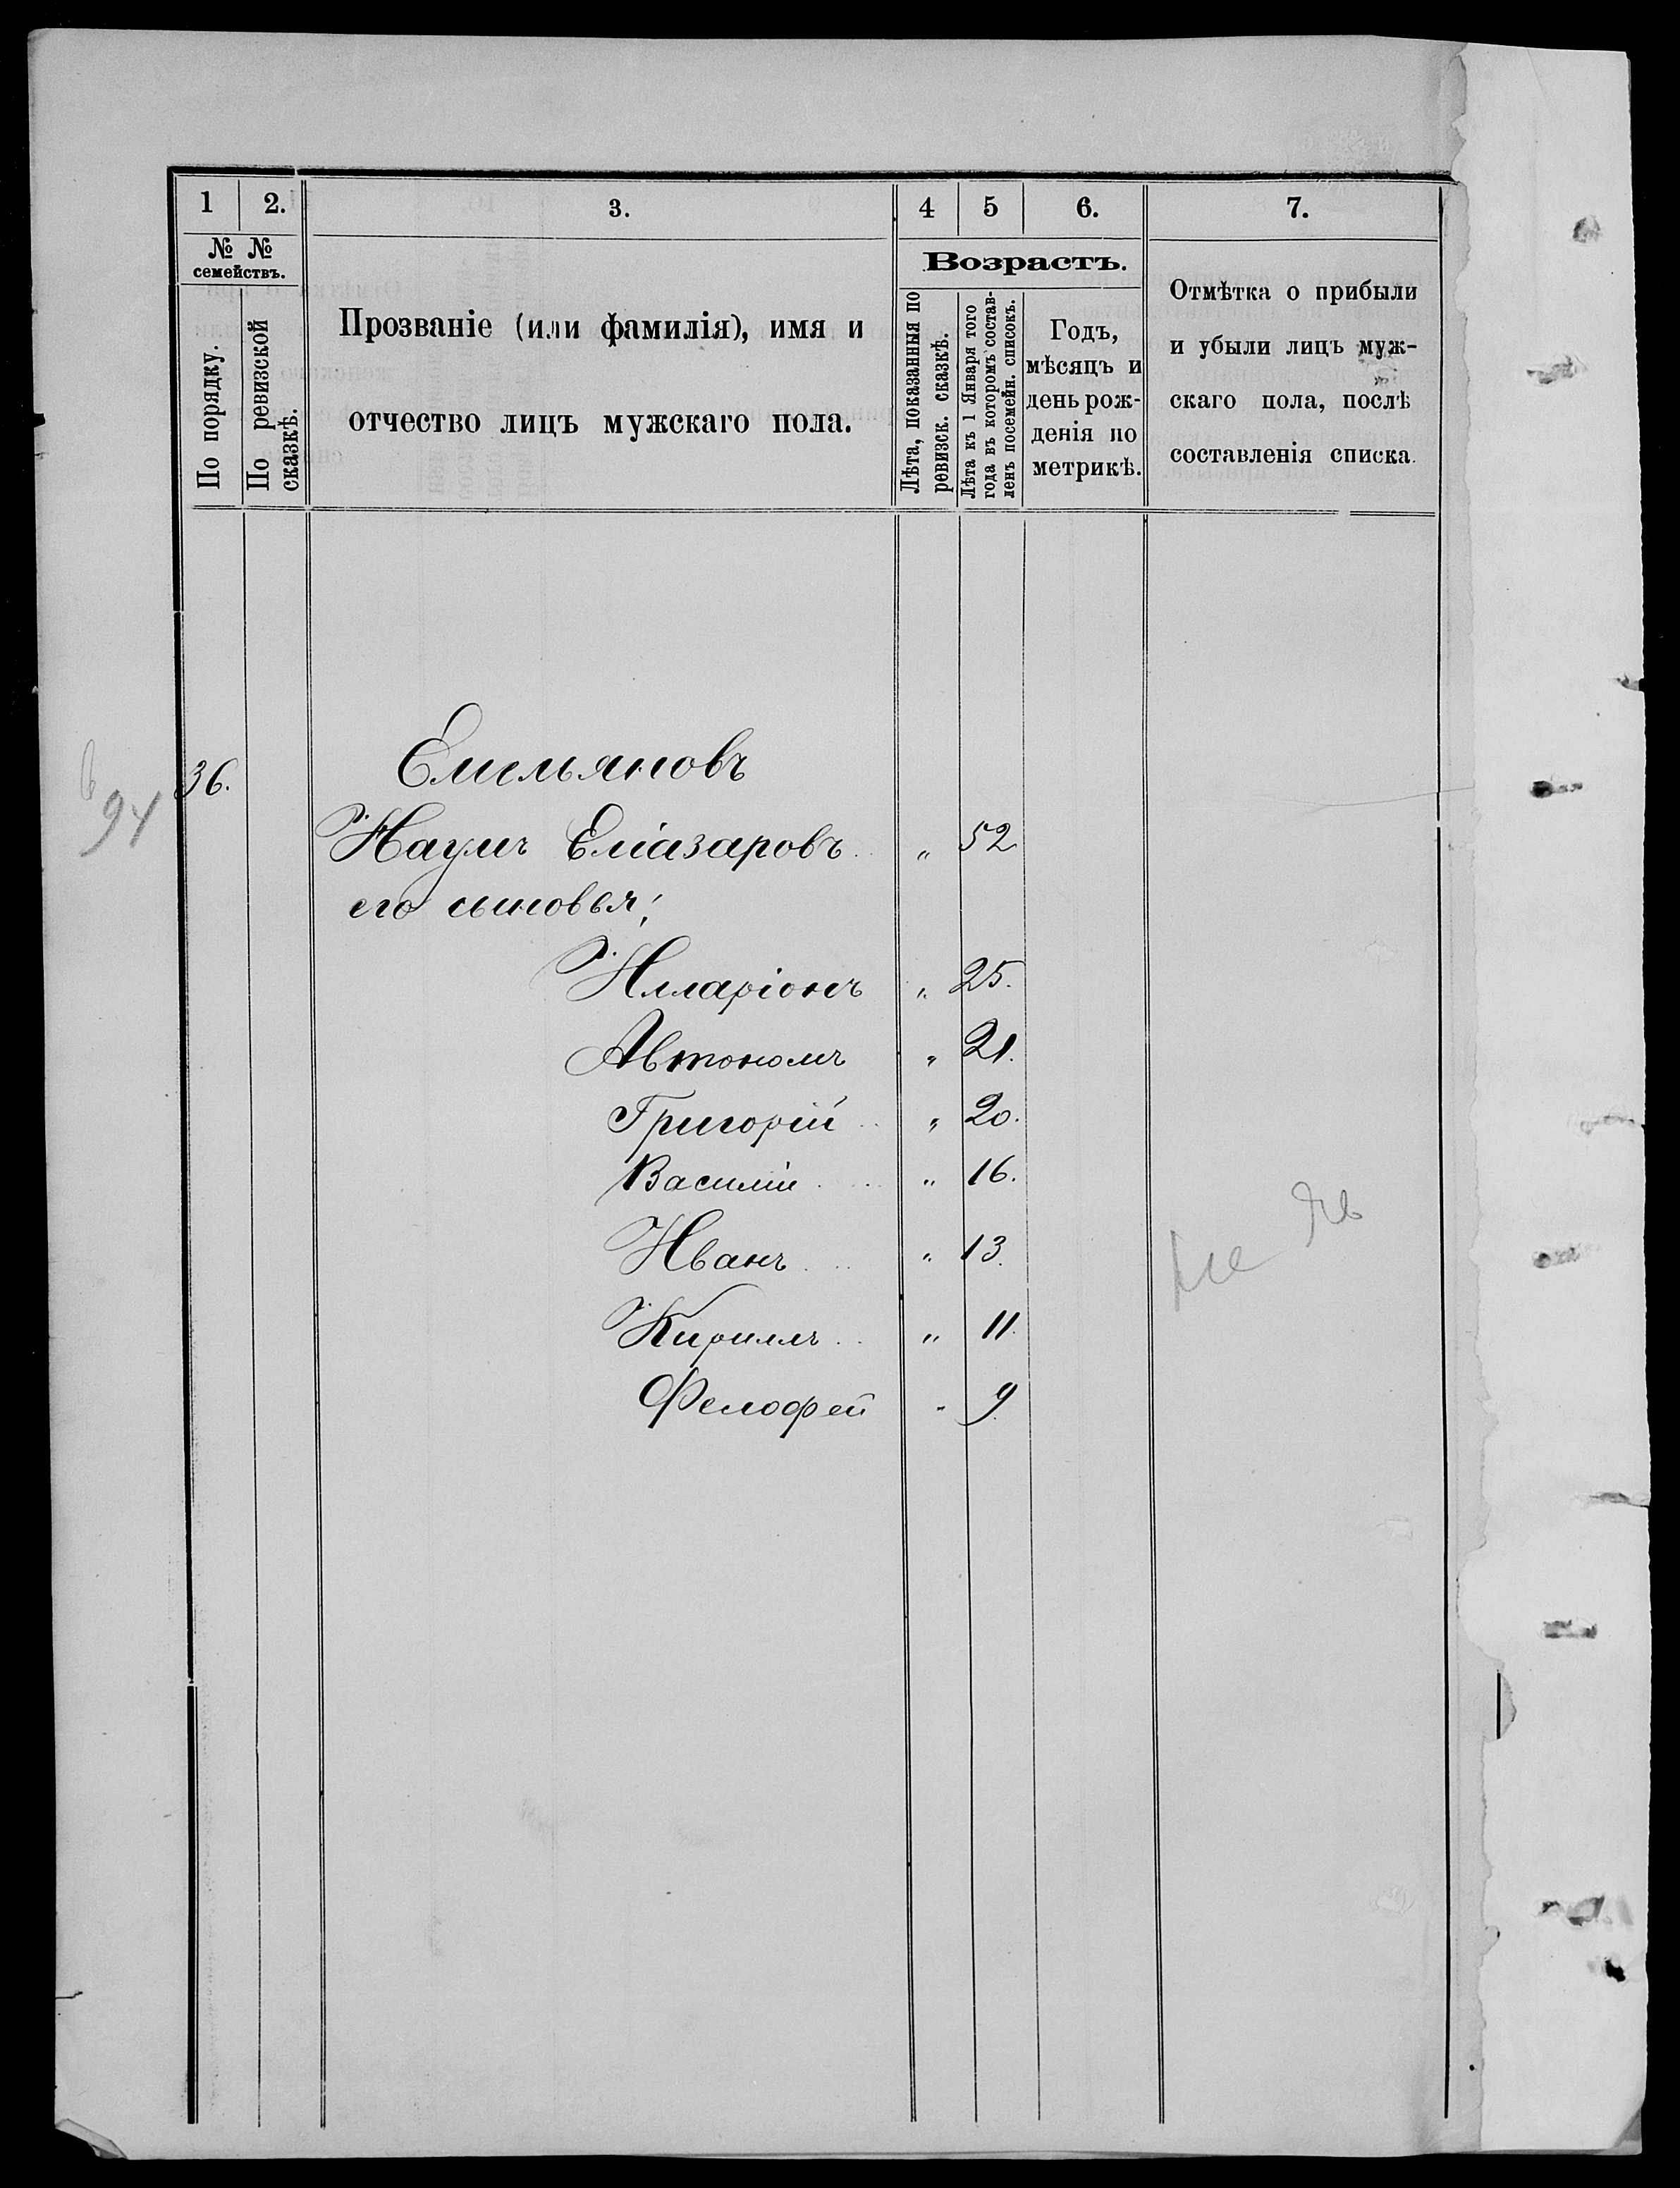 1 2. 3. 4 5 6. 7.
№ №
семействъ.
По порядку.
По ревизской
сказкѣ.
Прозваніе (или фамилія), имя и
отчество лицъ мужскаго пола.
Возрастъ.
Лѣта, показанныя по
ревизск. сказкѣ.
Лѣта къ 1 Января того
года въ которомъ состав-
ленъ посемейн. списокъ.
Годъ,
мѣсяцъ и
день рож-
денія по
метрикѣ.
Отмѣтка о прибыли
и убыли лицъ муж-
скаго пола, послѣ
составленія списка.
94
36. Емельяновъ
Наумъ Еліазаровъ " 52
его сыновья:
Илларіонъ " 25.
Автономъ " 21.
Григорій " 20.
Василій " 16.
Иванъ " 13.
Кириллъ " 11.
Фелофей " 9.
не яв